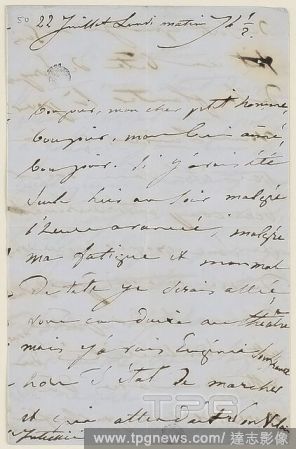 50
22 Juillet Lundi matin 7h ½
Bonjour, mon cher petit homme,
bonjour, mon bien aimé,
bonjour. Si j'avais été
seule hier au soir malgré
l'heure avancée, malgré
ma fatigue et mon mal
de tête je serais allée
vous conduire au théâtre
mais j'avais Eugénie
hors d'état de marcher
et qui
Juliette
TPG
www.tpgnews.com/達志影像